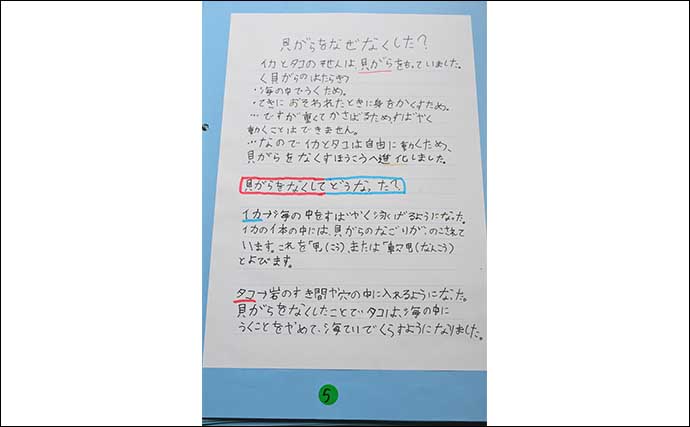 貝がらをなぜなくした?
イカとタコの祖先は、貝がらをもっていました。
<貝がらのはたらき>
・海の中でうくため。
・てきにおそわれたときに身をかくすため。
…ですが重くてかさばるためすばやく
動くことはできません。
…なのでイカとタコは自由に動くため、
貝がらをなくすほうこうへ進化しました。
貝がらをなくしてどうなった?
イカ→海の中をすばやく泳げるようになった。
イカの体の中には、貝がらのなごりが、のこされて
います。これを「甲(こう)、または「軟甲(なんこう)
とよびます。
タコ→岩のすき間や穴の中に入れるようになった。
貝がらをなくしたことでタコは、海の中に
うくことをやめて、海ていでくらすようになりました。
5